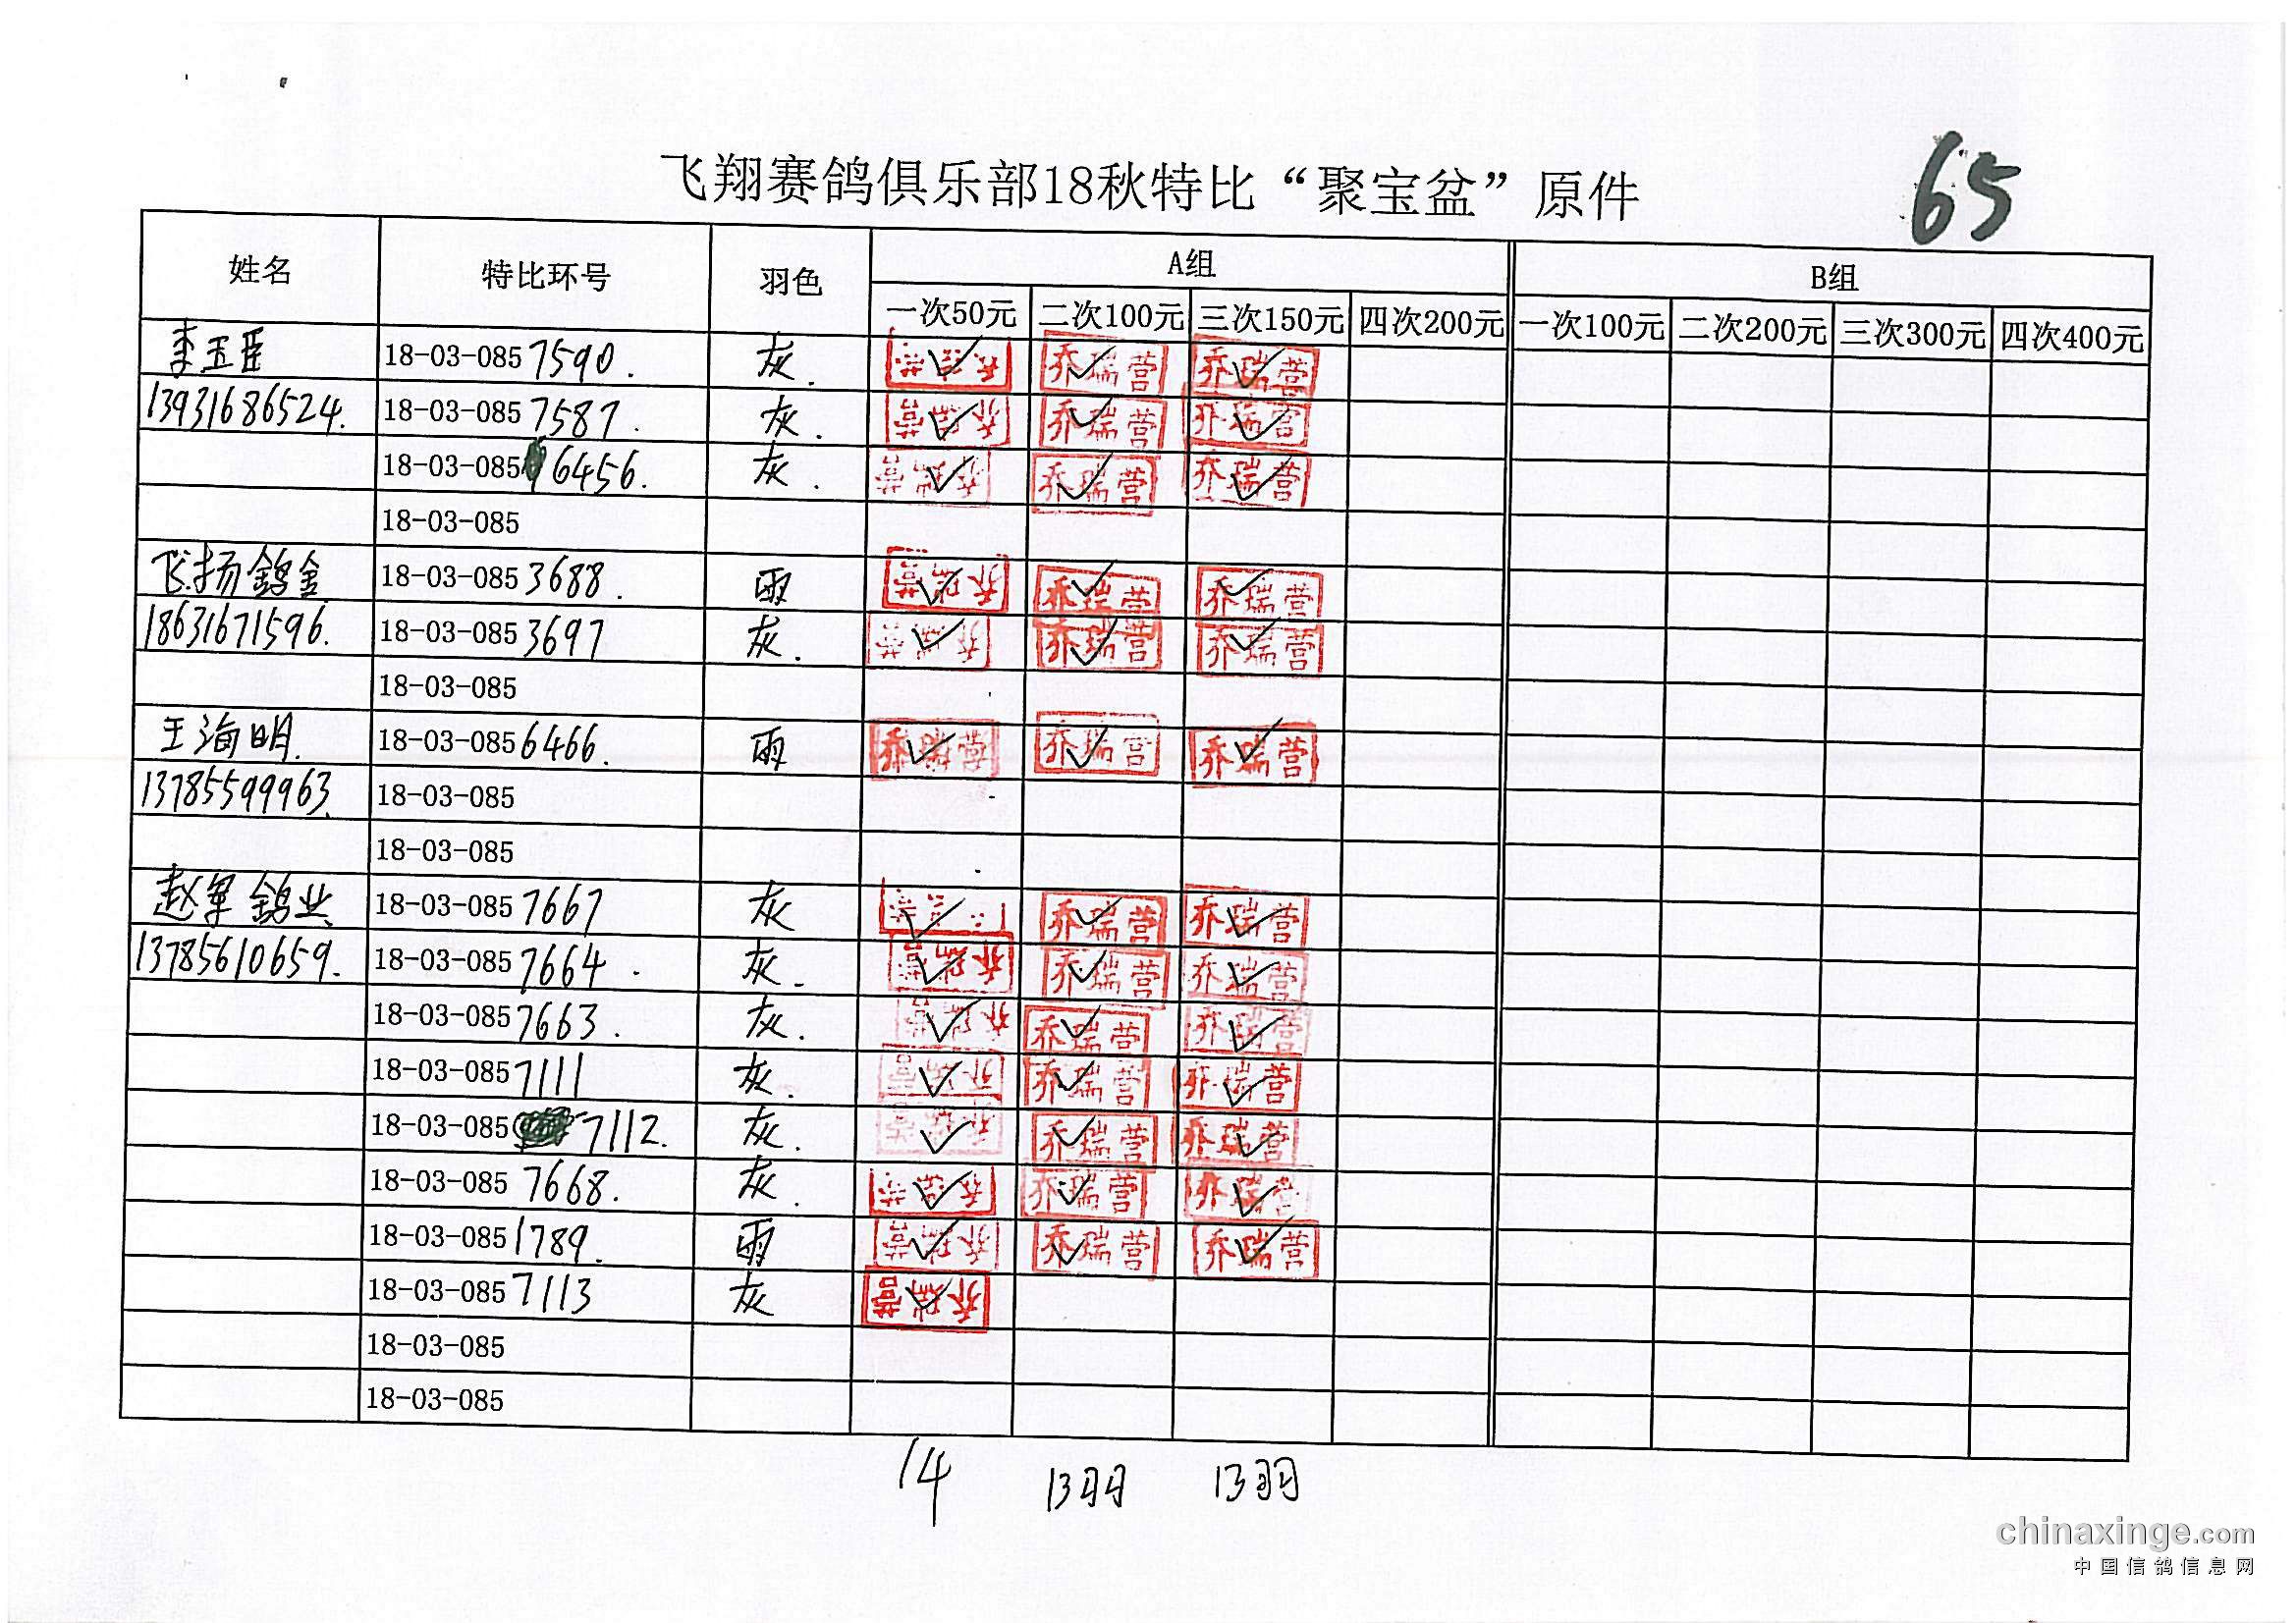 65
飞翔赛鸽俱乐部18秋特比“聚宝盆”原件
姓名 特比环号 羽色 A组 B组
一次50元 二次100元 三次150元 四次200元 一次100元 二次200元 三次300元 四次400元
李玉臣 18-03-085 7590. 灰. ✓ 乔瑞营 ✓ 乔瑞营 ✓
13931686524. 18-03-085 7587. 灰. 乔瑞营 ✓ 乔瑞营 ✓ 乔瑞营 ✓
18-03-085 6456. 灰. 乔瑞营 ✓ 乔瑞营 ✓ 乔瑞营 ✓
18-03-085
飞扬鸽舍 18-03-085 3688. 雨 乔瑞营 ✓ 乔瑞营 ✓ 乔瑞营 ✓
18631671596. 18-03-085 3697 灰. 乔瑞营 ✓ 乔瑞营 ✓ 乔瑞营 ✓
18-03-085
王海明. 18-03-085 6466. 雨 乔瑞营 ✓ 乔瑞营 ✓ 乔瑞营 ✓
13785599963. 18-03-085
18-03-085
赵军鸽业 18-03-085 7667 灰 ✓ 乔瑞营 ✓ 乔瑞营 ✓
13785610659. 18-03-085 7664. 灰. 乔瑞营 ✓ 乔瑞营 ✓ 乔瑞营 ✓
18-03-085 7663. 灰. 乔瑞营 ✓ 乔瑞营 ✓ 乔瑞营 ✓
18-03-085 7111 灰. 乔瑞营 ✓ 乔瑞营 ✓ 乔瑞营 ✓
18-03-085 7112. 灰. 乔瑞营 ✓ 乔瑞营 ✓ 乔瑞营 ✓
18-03-085 7668. 灰. ✓ 乔瑞营 ✓ 乔瑞营 ✓
18-03-085 1789. 雨 乔瑞营 ✓ 乔瑞营 ✓ 乔瑞营 ✓
18-03-085 7113 灰 乔瑞营 ✓
18-03-085
18-03-085
14 13羽 13羽
chinaxinge.com
中国信鸽信息网